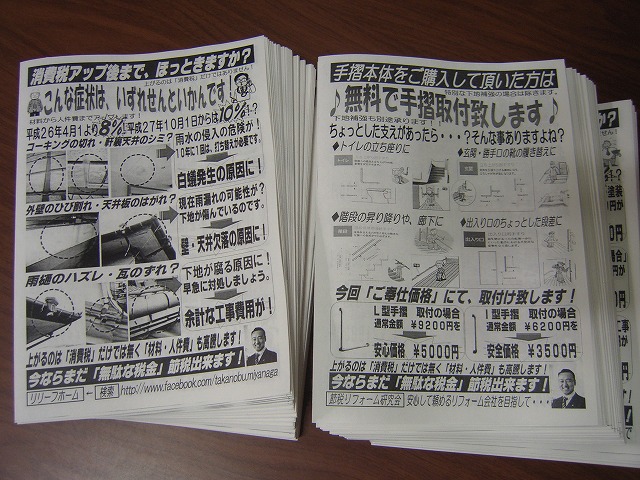 消費税アップ後まで、ほっときますか？
上がるのは「消費税」だけではありません！
こんな症状は、いずれせんといかんです
材料から人件費まで
平成26年4月1より8%！平成27年10月1日からは10%！？
コーキングの切れ・軒裏天井のシミ？
雨水の侵入の危険が！
10年に1度は、打ち替えが必要です。
白蟻発生の原因に！
外壁のひび割れ・天井板のはがれ？
現在雨漏れの可能性が？
下地が傷んでいるのです。
壁・天井欠落の原因に！
雨樋のハズレ・瓦のずれ？
下地が腐る原因に！
早急に対処しましょう。
余計な工事費用が！
上がるのは「消費税」だけでは無く「材料・人件費」も高騰します！
今ならまだ「無駄な税金」節税出来ます！
リリーフホーム ← 検索 http://www.facebook.com/takanobu.miyanaga
手摺本体をご購入して頂いた方は
特別な下地補強の場合は除きます。
♪無料で手摺取付致します♪
下地補強も別途承ります
ちょっとした支えがあったら・・・？そんな事ありますよね？
◆トイレの立ち座りに
◆玄関・勝手口の靴の履き替えに
トイレ
玄関
◆階段の昇り降りや、廊下に
◆出入り口のちょっとした段差に
階段
出入り口
今回「ご奉仕価格」にて、取付け致します！
L型手摺 取付の場合
通常金額 ￥9200円を
安心価格 ￥5000円
I型手摺 取付の場合
通常金額 ￥6200円を
安全価格 ￥3500円
上がるのは「消費税」だけでは無く「材料・人件費」も高騰します！
今ならまだ「無駄な税金」節税出来ます！
節税リフォーム研究会 安心して頼めるリフォーム会社を目指して・・・